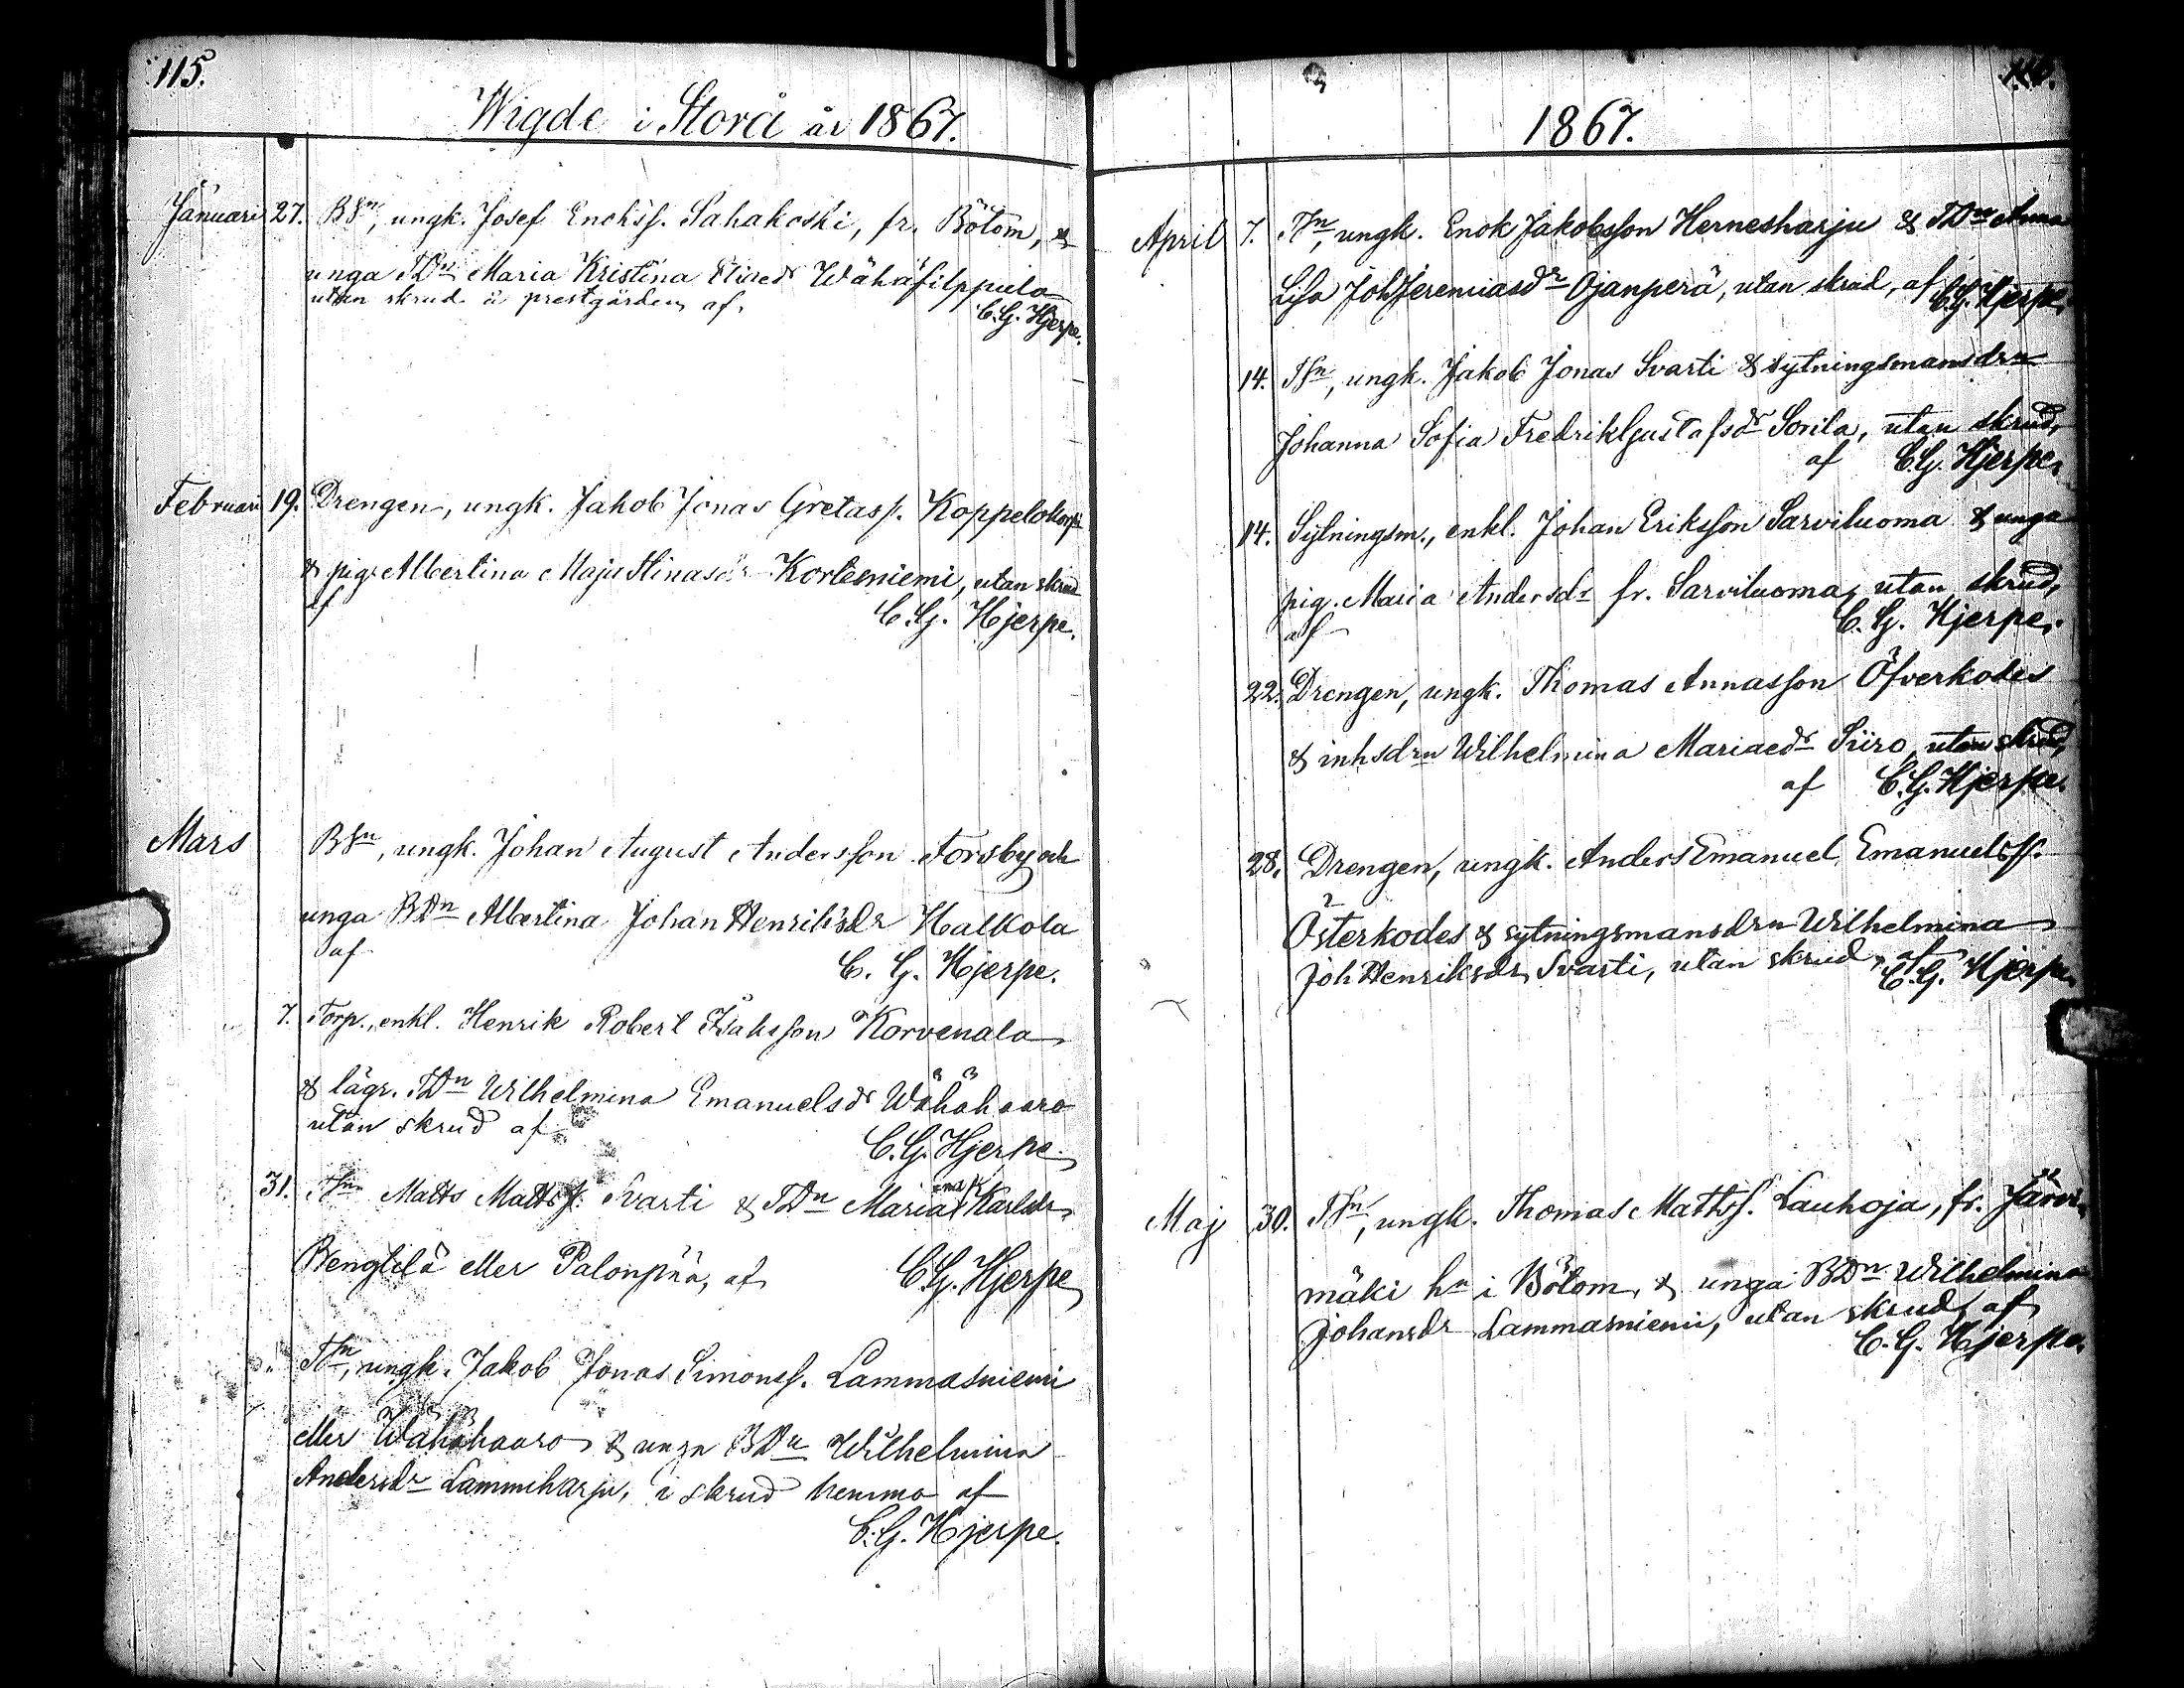 115.
Wigde i Storå år 1867.
Januari 27. BSn, ungk. Josef Enokss. Sahakoski, fr. Bötom, &
unga TDn Maria Kristina Wähäfilppula
utan skrud å prestgården af
C. G. Hjerpe.
Februari 19. Drengen, ungk. Jakob Jonas Gretass. Koppelokorpi
& pig. Albertina Maja Stinasdr Korteniemi, utan skrud
af
C. G. Hjerpe.
Mars BSn, ungk. Johan August Andersson Forsby och
unga BDn Albertina Johan Henriksdr Halkola
af
C. G. Hjerpe.
7. Torp., enkl. Henrik Robert Isaksson Korvenala
& lägr. TDn Wilhelmina Emanuelsdr Wähähaaro
utan skrud af
C. G. Hjerpe.
31. TSn Matts Mattss. Svarti & TDn Maria Karlsdr
Bengtilä eller Palonpää, af C. G. Hjerpe
" TSn, ungk. Jakob Jonas Simonss. Lammasniemi
eller Wähähaaro & unga BDn Wilhelmina
Andersdr Lammiharju, i skrud hemma af
C. G. Hjerpe.
1867.
April 7. TSn, ungk. Enok Jakobsson Hernesharju & TDn Anna
Lisa Joh Jeremiasdr Ojanperä, utan skrud, af C. G. Hjerpe.
14. TSn, ungk. Jakob Jonas Svarti & sytningsmansdrn
Johanna Sofia Fredrik Gustafsdr Sorila, utan skrud,
af C. G. Hjerpe.
14. Sytningsm., enkl. Johan Eriksson Sarviluoma & unga
pig. Maria Andersdr fr. Sarviluoma, utan skrud,
af C. G. Hjerpe.
22. Drengen, ungk. Thomas Annasson Öfverkodes
& inhsdrn Wilhelmina Mariaedr Siiro, utan skrud,
af C. G. Hjerpe.
28. Drengen, ungk. Anders Emanuel Emanuelss.
Österkodes & sytningsmansdrn Wilhelmina
Joh Henriksdr Svarti, utan skrud, af
C. G. Hjerpe.
Maj 30. TSn, ungk. Thomas Mattss. Lauhoja, fr. Järvi
mäki hn i Bötom, & unga BDn Wilhelmina
Johansdr Lammasniemi, utan skrud, af
C. G. Hjerpe.